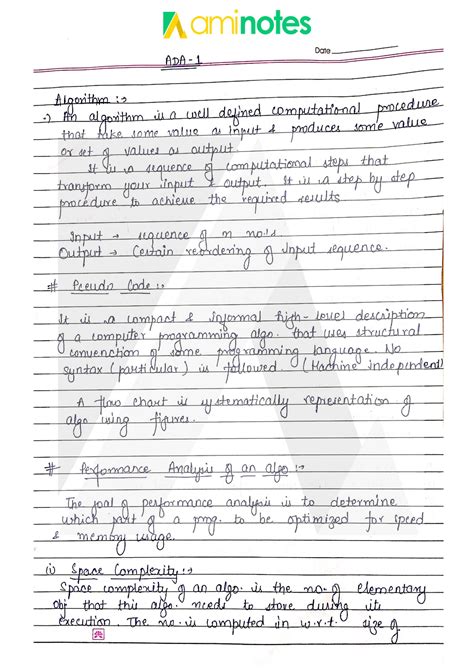 aminotes
Date
ADA-1
Algorithm :->
-) An algorithm is a well defined computational procedure
that take some value as input & produces some value
or set of values as output.
It is a sequence of computational steps that
transform your input & output. It is a step by step
procedure to achieve the required results
Input → sequence of n no's.
Output → Certain reordering of Input sequence.
# Pseudo Code :->
It is a compact & informal high-level description
of a computer programming algo. that uses structural
convenction of some programming language. No
syntax (particular) is followed. (Machine independent)
A flow chart is systematically representation of
algo using figures.
# Performance Analysis of an algo :->
The goal of performance analysis is to determine
which part of a prog. to be optimized for speed
& memory usage.
(i) Space Complexity :->
Space complexity of an algo. is the no. of elementary
obj that this algo. needs to store during its
execution. The no. is computed in w.r.t. size of